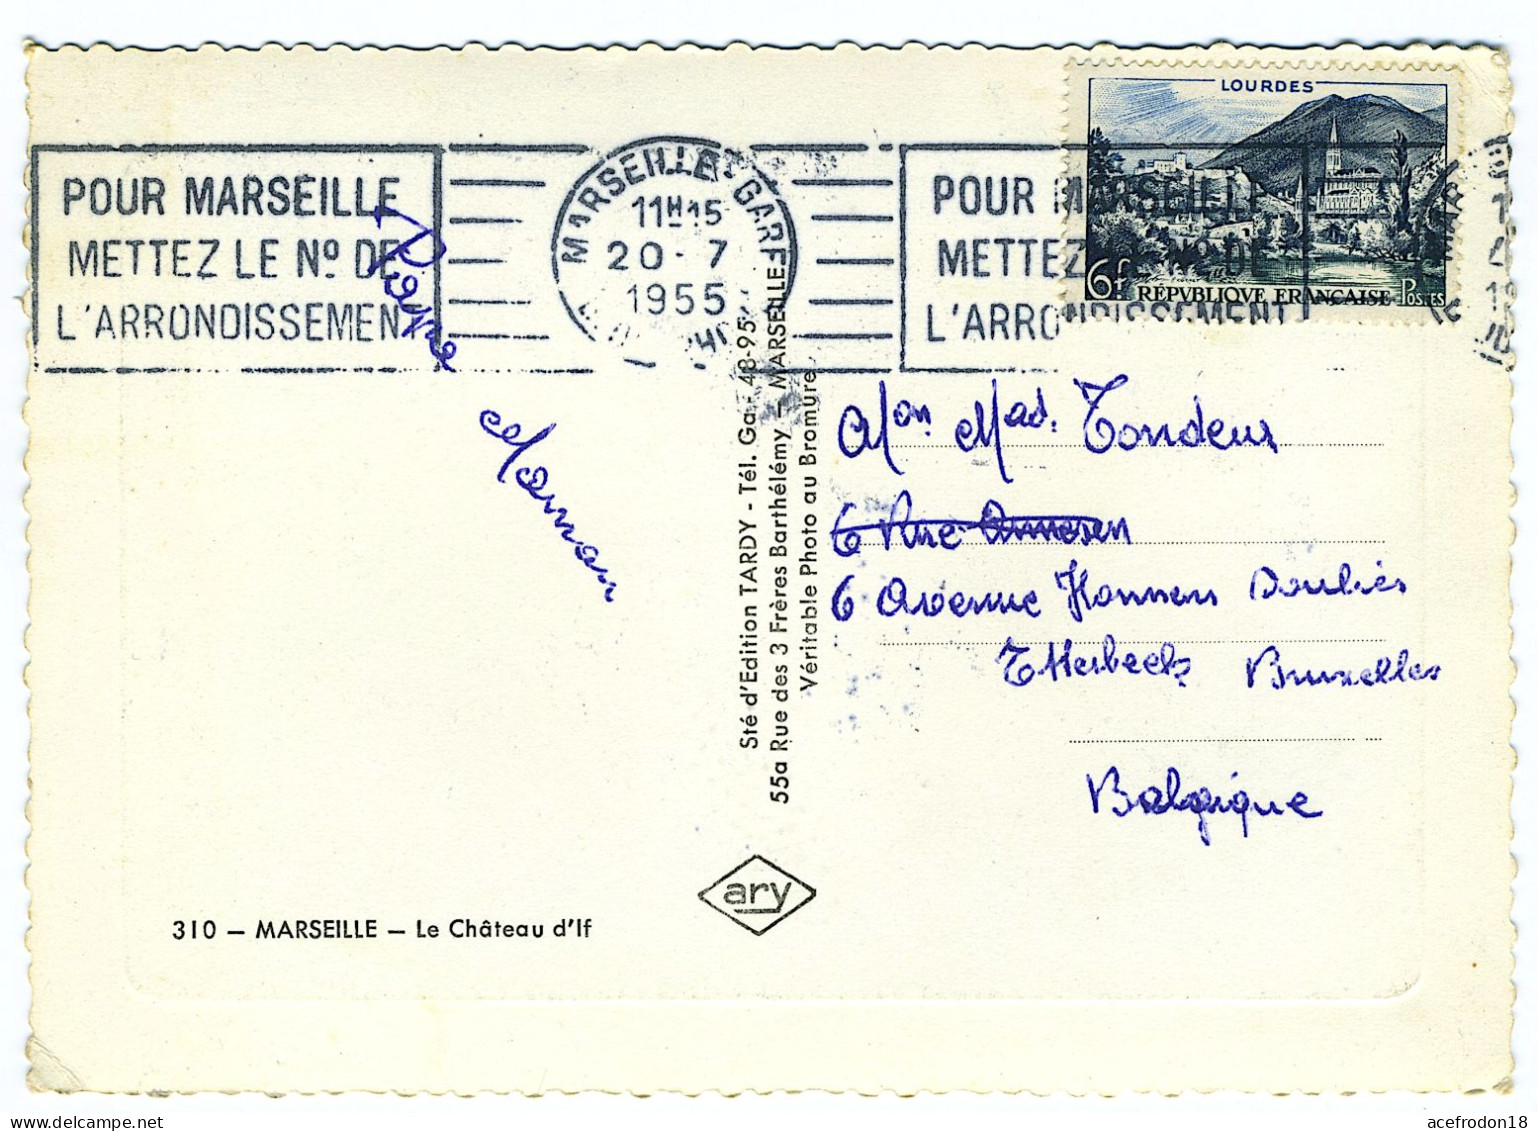 LOURDES
6f
RÉPVBLIQVE FRANCAISE POSTES
POUR MARSEILLE
METTEZ LE Nº DE
L'ARRONDISSEMENT
MARSEILLE GARE
11H15
20 - 7
1955
POUR MARSEILLE
METTEZ LE Nº DE
L'ARRONDISSEMENT
Maman
Mon Mad. Tondeur
6 Rue
6 Avenue Hansen Soulié
Etterbeek Bruxelles
Belgique
Sté d'Edition TARDY - Tél. Ga. 48-95
55a Rue des 3 Frères Barthélémy - MARSEILLE
Véritable Photo au Bromure
ary
310 — MARSEILLE — Le Château d'If
acefrodon18